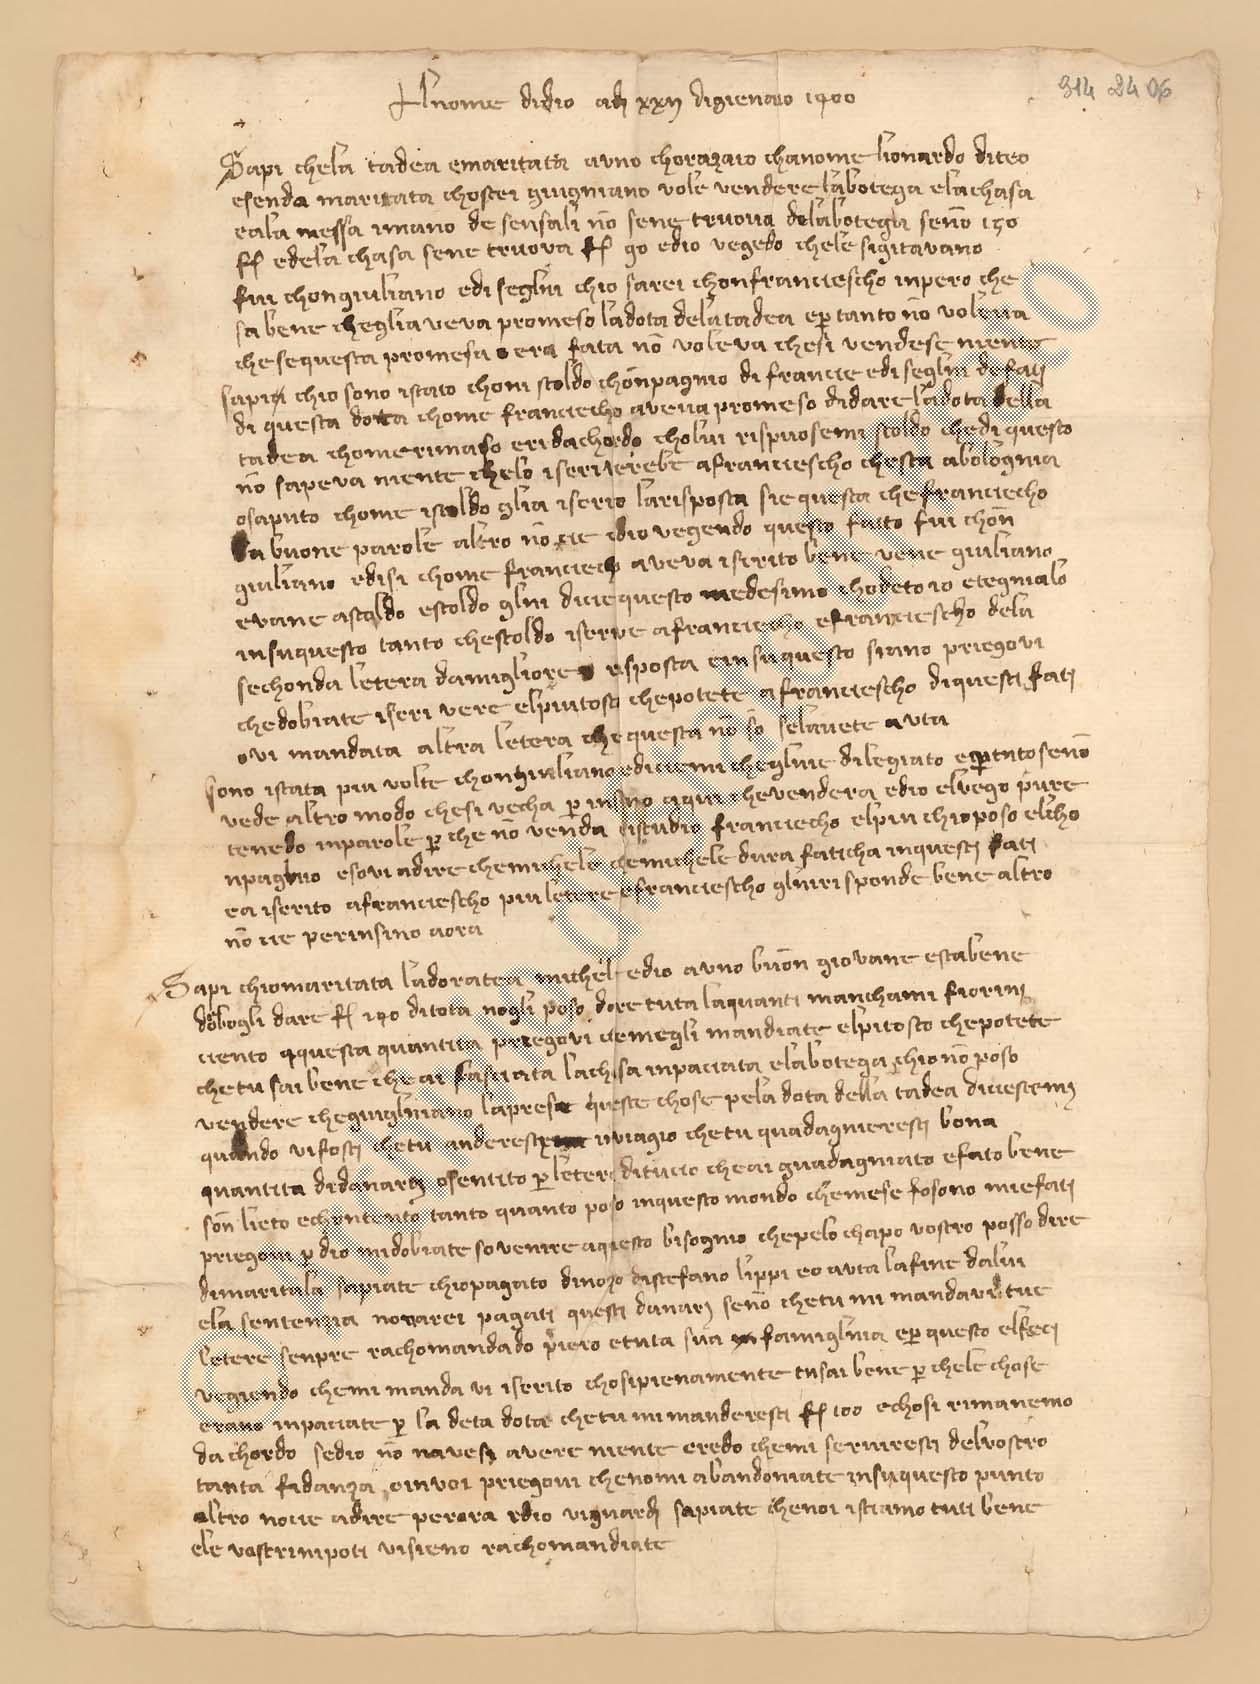 314 2406
Al nome didio adi xxij digienaio 1400
Sapi chela tadea emaritata avno chorazaio chanome lionardo diteo
esenda maritata chostei guigniano vole vendere labotega elachasa
eala messa imano de sensali nō sene truova delabotega senō 150
f edela chasa sene truova f 90 edio vegedo chele sigitavano
fui chongiuliano edisegliui chio sarei chonfranciescho inpero che
sabene cheglia veva promeso ladota delatadea eper tanto nō voleva
chesequesta promesa era fata nō voleva chesi vendese niente
sapia chio sono istato choni stoldo chonpagnio di francie ediseglini defati
di questa dota chome franciecho aveva promeso didare ladota della
tadea chomerimaso eridachordo cholui rispuosemi stoldo chediquesto
nō sapeva niente chelo iscriverebe afranciescho chesta abolognia
osaputo chome istoldo glia iscrito larisposta sie questa chefranciecho
da buone parole altro nō cie edio vegendo questo fatto fui chon
giuliano edisi chome franciecho aveva iscrito bene vene giuliano
evane astoldo estoldo glni dicie questo medesimo chodeto io etegnialo
insuquesto tanto chestoldo iscrive afranciecho efranciescho dela
sechonda letera damigliore risposta einsuquesto siano priegovi
chedobiate iscri vere elpiutosto chepotete afranciescho diquesti fati
ovi mandata altra letera che questa nō so selavete avta
sono istata piu volte chongiuliano ediciemi chegliuie dilegiato epertanto senō
vede altro modo chesi vecha per insino aqui chevendera edio elvego pure
tenedo inparole per che nō venda istudio franciecho elpiu chioposo elcho
npagnio esovi adire chemichele chemichele dura faticha inquesti fati
ea iscrito afranciescho piu letere efranciescho gliurisponde bene altro
nō cie perinsino aora
Sapi chiomaritata ladoratea michel edio avno buon giovane estabene
dobogli dare f 190 ditota nogli poso dare tuta laquanti manchami fiorini
ciento questa quantita priegovi ciemegli mandiate elpitosto chepotete
chetu sai bene che ai lasciata lachasa inpaciata elabotega chionō poso
vendere cheguigliniano lapresa queste chose pela dota della tadea diciestemi
quando vifosti chetu anderesti inviagio chetu guadagnieresti bona
quantita didanari osentito per letera ditucio cheai guadagniato efato bene
son lieto echontento tanto quanto poso inquesto mondo chemese fosono miefati
priegovi per dio midobiate sovenire aquesto bisognio chepelo chapo vostro posso dire
dimaritala sapiate chiopagato dinozo distefano lippi eo avta lafine dalui
ela sentenzia novarei pagati questi danari senō chetu mi mandavi tue
letere senpre rachomandado piero etuta sua famiglia eper questo elfeci
vegiendo chemi manda vi iscrito chosipienamente tusai bene per chele chose
erano inpaciate per la deta dota chetu mi manderesti f 100 echosi rimanemo
da chordo sedio nō navesi avere niente credo chemi serviresti delvostro
tanta fidanza oinvoi priegovi chenomi abandoniate insuquesto punto
altro nocie adire perora edio viguardi sapiate chenoi istiamo tuti bene
ele vostrinipoti visieno rachomandate